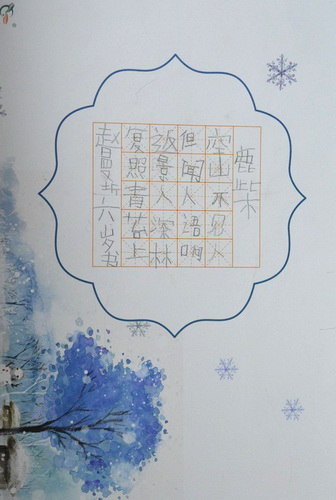 鹿柴
空山不见人
但闻人语响
返景入深林
复照青苔上
赵曼 六岁书